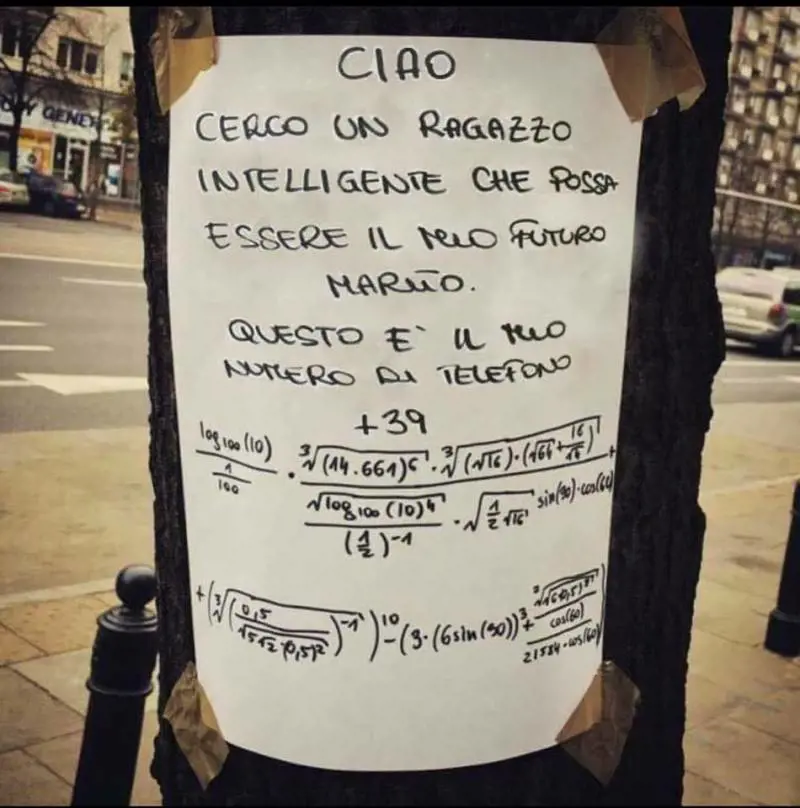 CIAO
CERCO UN RAGAZZO
INTELLIGENTE CHE POSSA
ESSERE IL MIO FUTURO
MARITO.
QUESTO E' IL MIO
NUMERO DI TELEFONO
+39
log₁₀₀(10) / (1/100) · (∛(14.661)⁶ · ∛((√16)·(√64+16/16))) / ((√log₁₀₀(10)⁴ / (1/2)⁻¹) · √(1/2 √16)^(sin(90)·cos(60))) +
+ (∛(0,5 / (0,5)²)⁻¹)¹⁰ - (3·(6sin(90))³ + cos(60) / 21584·cos(60))
GENER